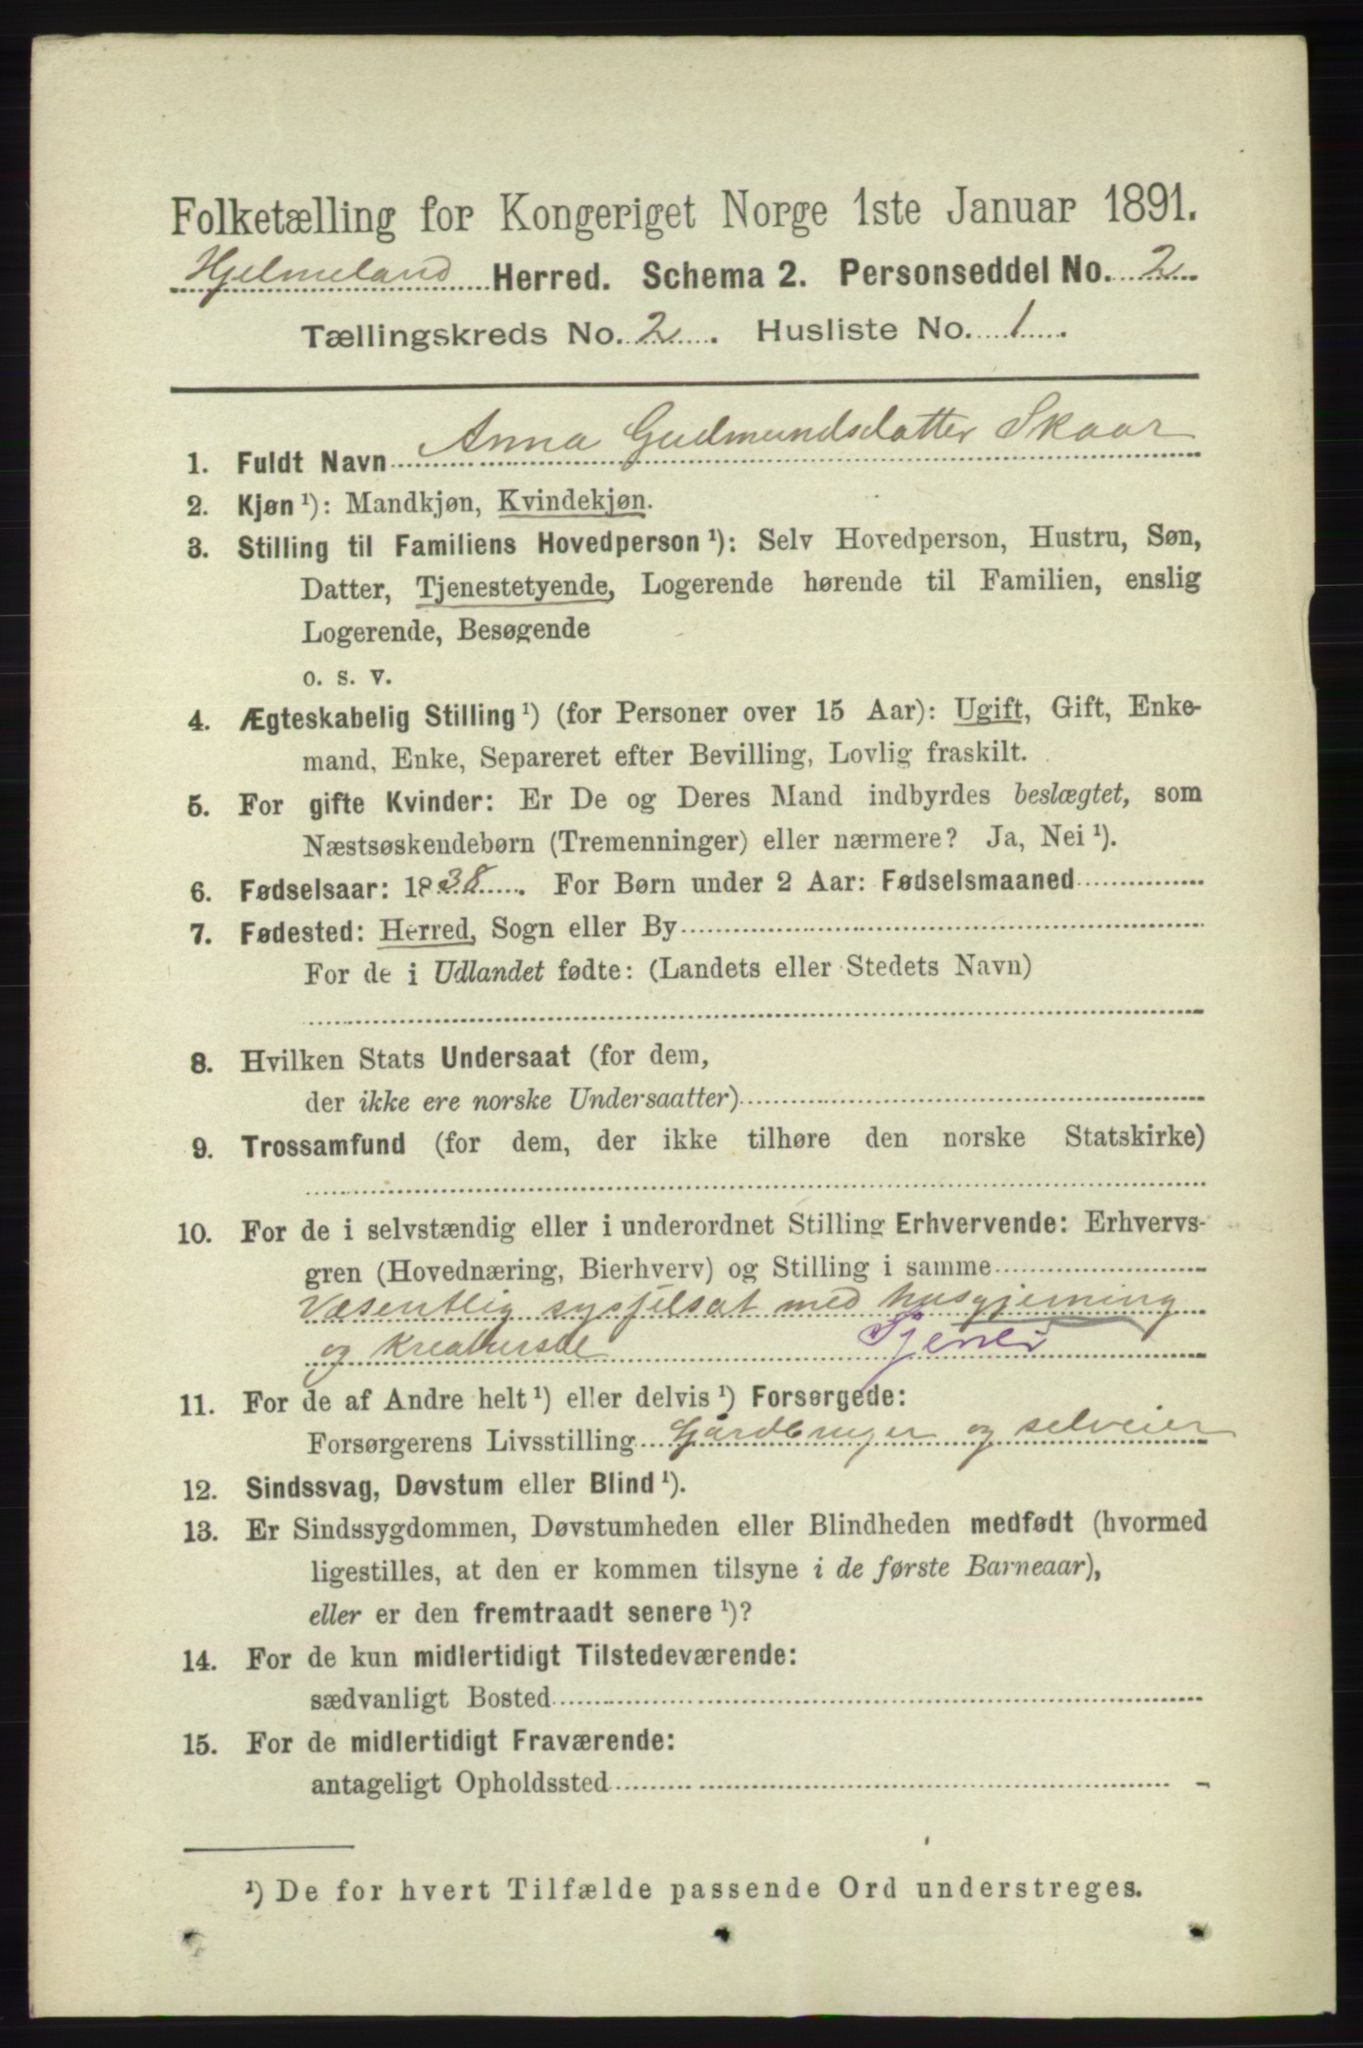 Folketælling for Kongeriget Norge 1ste Januar 1891.
Hjelmeland Herred. Schema 2. Personseddel No. 2
Tællingskreds No. 2. Husliste No. 1.
1. Fuldt Navn Anna Gudmundsdatter Skaar
2. Kjøn ¹): Mandkjøn, Kvindekjøn.
3. Stilling til Familiens Hovedperson ¹): Selv Hovedperson, Hustru, Søn,
Datter, Tjenestetyende, Logerende hørende til Familien, enslig
Logerende, Besøgende
o. s. v.
4. Ægteskabelig Stilling ¹) (for Personer over 15 Aar): Ugift, Gift, Enke-
mand, Enke, Separeret efter Bevilling, Lovlig fraskilt.
5. For gifte Kvinder: Er De og Deres Mand indbyrdes beslægtet, som
Næstsøskendebørn (Tremenninger) eller nærmere? Ja, Nei ¹).
6. Fødselsaar: 1838. For Børn under 2 Aar: Fødselsmaaned
7. Fødested: Herred, Sogn eller By
For de i Udlandet fødte: (Landets eller Stedets Navn)
8. Hvilken Stats Undersaat (for dem,
der ikke ere norske Undersaatter)
9. Trossamfund (for dem, der ikke tilhøre den norske Statskirke)
10. For de i selvstændig eller i underordnet Stilling Erhvervende: Erhvervs-
gren (Hovednæring, Bierhverv) og Stilling i samme
Væsentlig sysselsat med husgjerning
og kreaturstel
11. For de af Andre helt ¹) eller delvis ¹) Forsørgede:
Forsørgerens Livsstilling Gårdbruger og selveier
12. Sindssvag, Døvstum eller Blind ¹).
13. Er Sindssygdommen, Døvstumheden eller Blindheden medfødt (hvormed
ligestilles, at den er kommen tilsyne i de første Barneaar),
eller er den fremtraadt senere ¹)?
14. For de kun midlertidigt Tilstedeværende:
sædvanligt Bosted
15. For de midlertidigt Fraværende:
antageligt Opholdssted
¹) De for hvert Tilfælde passende Ord understreges.